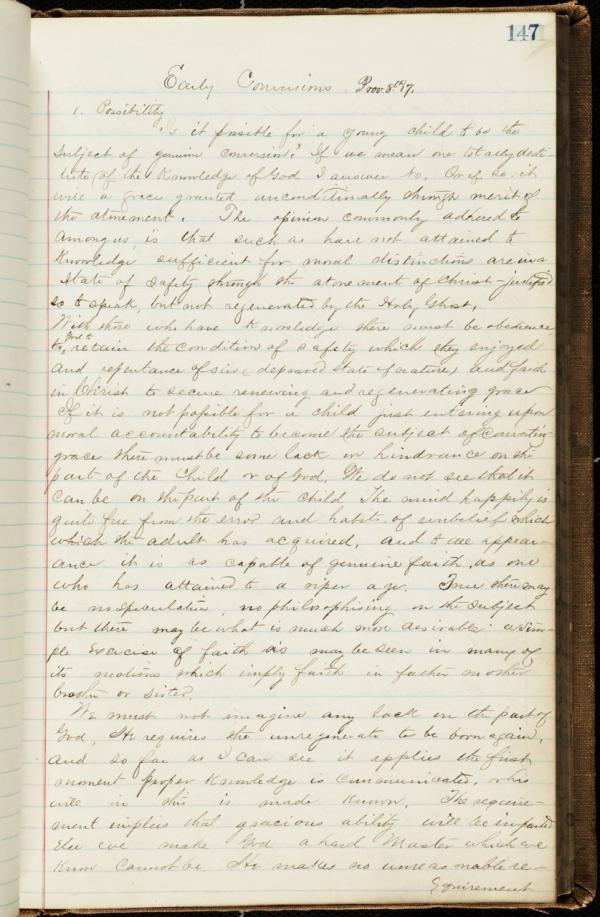 147
Early Conversions. Prov. 8th 17.
1. Possibility
Is it possible for a young child to be the
subject of genuine conversion? If we mean one totally desti-
tute of the Knowledge of God I answer No. Or if so, it
will a grace granted unconditionally through merit of
the atonement. The opinion commonly adhered to
among us, is that such as have not attained to
Knowledge sufficient for moral distinctions are in a
State of safety through the atonement of Christ - justified
so to speak, but not regenerated by the Holy Ghost.
With those who have Knowledge there must be obedience
to God to retain the condition of safety which they enjoyed
and repentance of sin (depraved state of nature) and faith
in Christ to secure renewing and regenerating grace
If it is not possible for a child just entering upon
moral accountability to become the subject of convertin
grace there must be some lack or hindrance on the
part of the Child or of God. We do not see that it
can be on the part of the child The mind happily is
quite free from the error and habits of unbelief which
which the adult has acquired, and to all appear-
ance it is as capable of genuine faith, as one
who has attained to a riper age. True there may
be no speculation, no philosophising on the subject
but there may be what is much more desirable a sim-
ple exercise of faith as may be seen in many of
its motions which imply faith in father mother
brother or sister.
We must not imagine any lack on the part of
God, He requires the unregenerate to be born again,
and so far as I can see it applies the first
moment proper Knowledge is communicated, or his
will in this is made Known. The require-
ment implies that gracious ability will be imparted
Else we make God a hard Master which we
Know cannot be. He makes no unreasonable re-
quirement